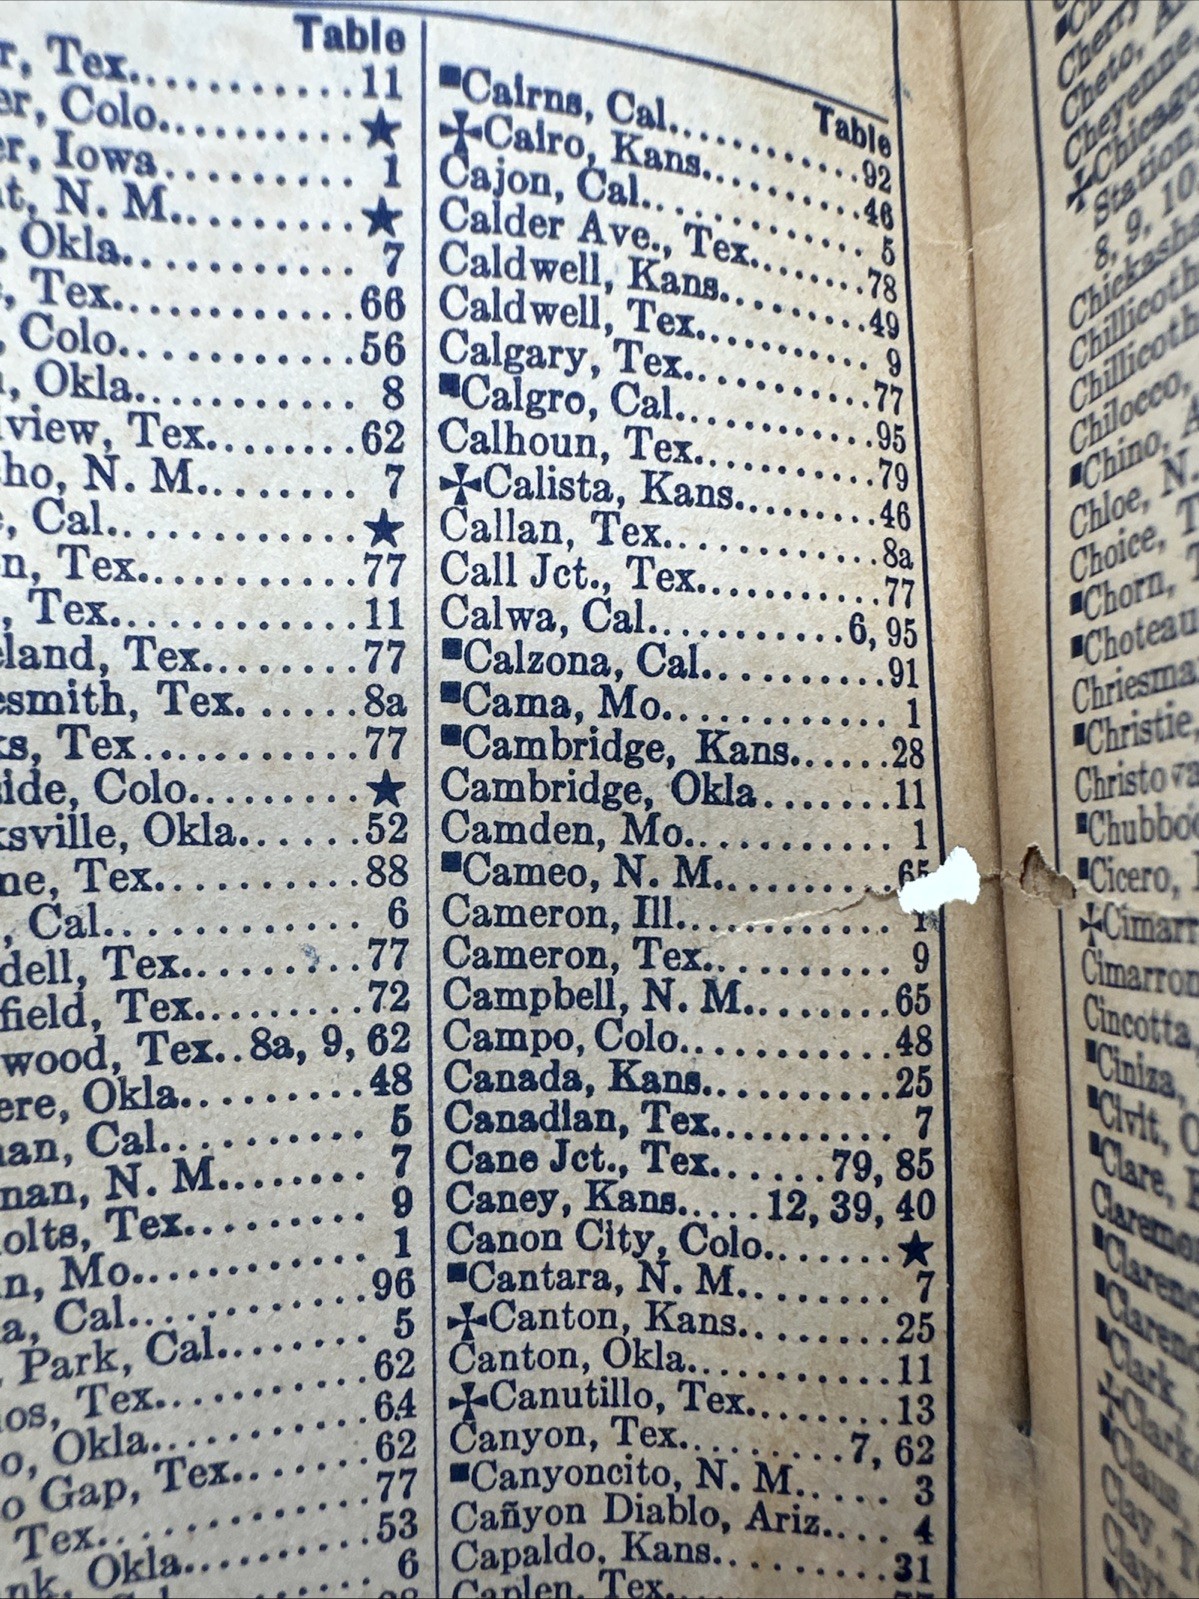 Table
Tex. 11
Colo. ★
Iowa 1
N. M. ★
Okla. 7
Tex. 66
Colo. 56
Okla. 8
Tex. 62
N. M. 7
Cal. ★
Tex. 77
Tex. 11
Tex. 77
Tex. 8a
Tex. 77
Colo. ★
Okla. 52
Tex. 88
Cal. 6
Tex. 77
Tex. 72
Tex. 8a, 9, 62
Okla. 48
Cal. 5
N. M. 7
Tex. 9
Mo. 1
Cal. 96
Park, Cal. 5
Tex. 62
Okla. 64
Gap, Tex. 62
Tex. 77
Okla. 53
6
Table
■Cairns, Cal. 92
✠Cairo, Kans. 46
Cajon, Cal. 5
Calder Ave., Tex. 78
Caldwell, Kans. 49
Caldwell, Tex. 9
Calgary, Tex. 77
■Calgro, Cal. 95
Calhoun, Tex. 79
✠Calista, Kans. 46
Callan, Tex. 8a
Call Jct., Tex. 77
Calwa, Cal. 6, 95
■Calzona, Cal. 91
■Cama, Mo. 1
■Cambridge, Kans. 28
Cambridge, Okla. 11
Camden, Mo. 1
■Cameo, N. M. 65
Cameron, Ill. 1
Cameron, Tex. 9
Campbell, N. M. 65
Campo, Colo. 48
Canada, Kans. 25
Canadian, Tex. 7
Cane Jct., Tex. 79, 85
Caney, Kans. 12, 39, 40
Canon City, Colo. ★
■Cantara, N. M. 7
✠Canton, Kans. 25
Canton, Okla. 11
✠Canutillo, Tex. 13
Canyon, Tex. 7, 62
■Canyoncito, N. M. 3
Cañyon Diablo, Ariz. 4
Capaldo, Kans. 31
Caplen, Tex.
Cherry
Cheto,
Cheyenne,
✠Chicago
Station,
8, 9, 10
Chickasha
Chillicothe
Chillicothe
Chilocco,
■Chino,
Chloe, N.
Choice,
■Chorn,
■Choteau
Chriesman
■Christie,
Christoval
■Chubbo
■Cicero,
✠Cimarr
Cimarron
Cincotta,
■Ciniza,
■Civit,
■Clare,
Claremo
■Claren
■Claren
■Clark,
✠Clark
■Claus
Clay,